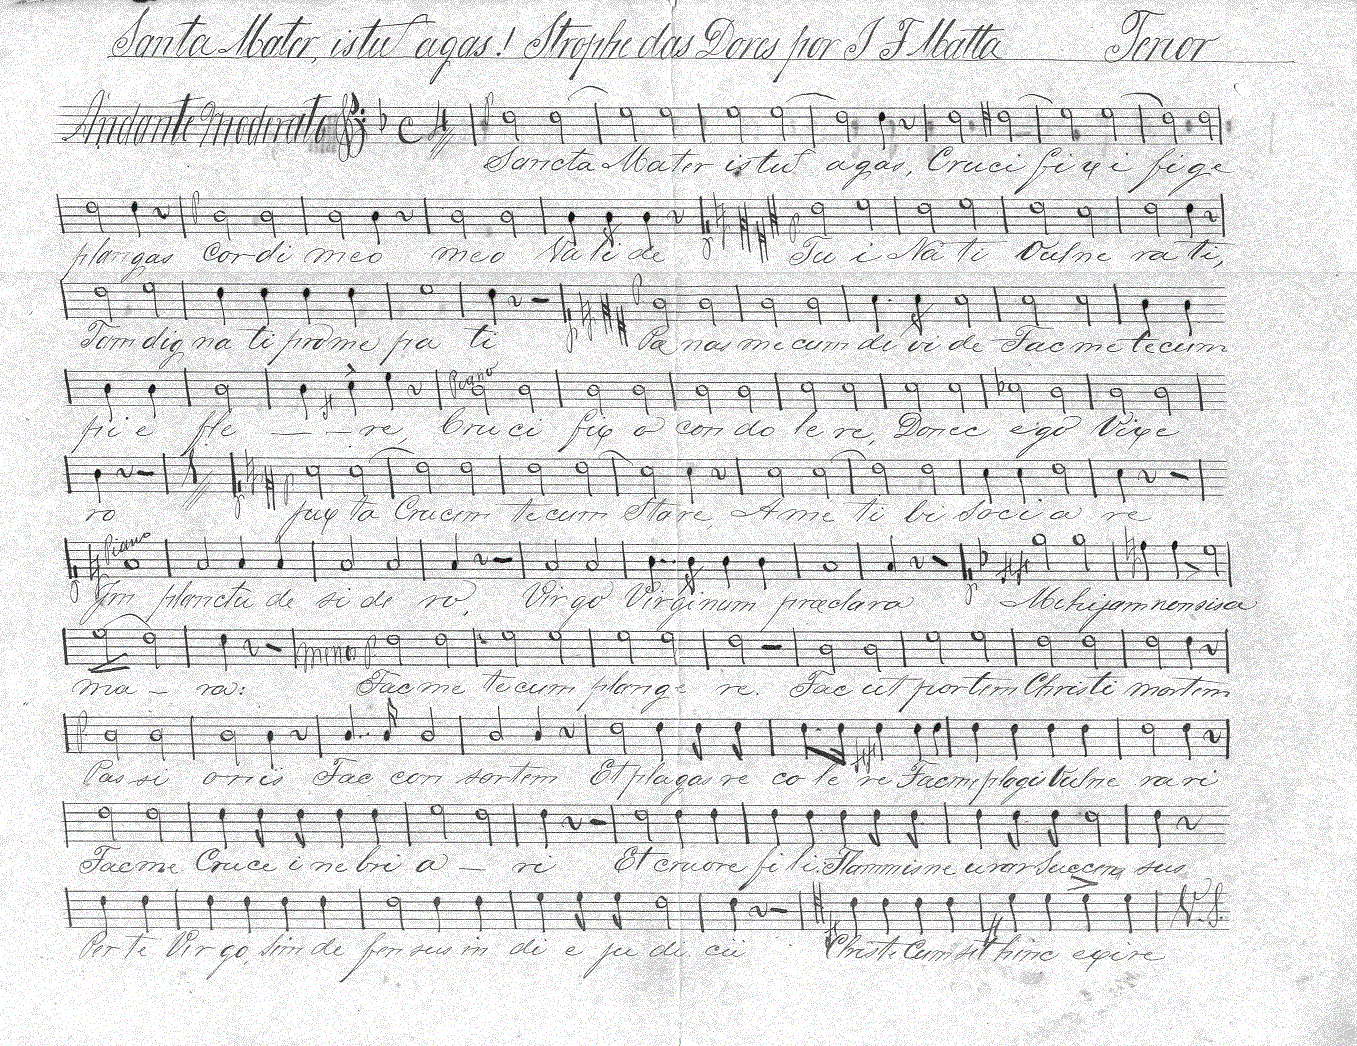 Santa Mater, istud agas! Strophe das Dores por J F Matta Tenor
Andante Moderato
Sancta Mater istud agas, Cruci fi xi fi ge
plangas Cordi meo meo Va li de Tu i Na ti Vulne ra ti,
Tam dig na ti pro me pa ti Pa nas mecum di vi de Fac me tecum
Piano
pi e fle — — re, Cru ci fix o con do le re, Donec ego Vixe
ro jux ta Crucem tecum Stare A me ti bi Soci a re
Piano
Im planctu de si de ro, Virgo Virginum præclara Mihi jam non sis a
ma — ra: Fac me tecum plange re. Fac ut portem Christi mortem
Pas si onis Fac con sortem Et plagas re co le re Fac me plagis Vulne ra ri
Fac me Cruce i ne bri a — ri Et cruore fi li: Flammis ne urar Succen sus
Per te Virgo, Sim de fen sus in di e ju di cii Christe Cum sit hinc exire
V. S.